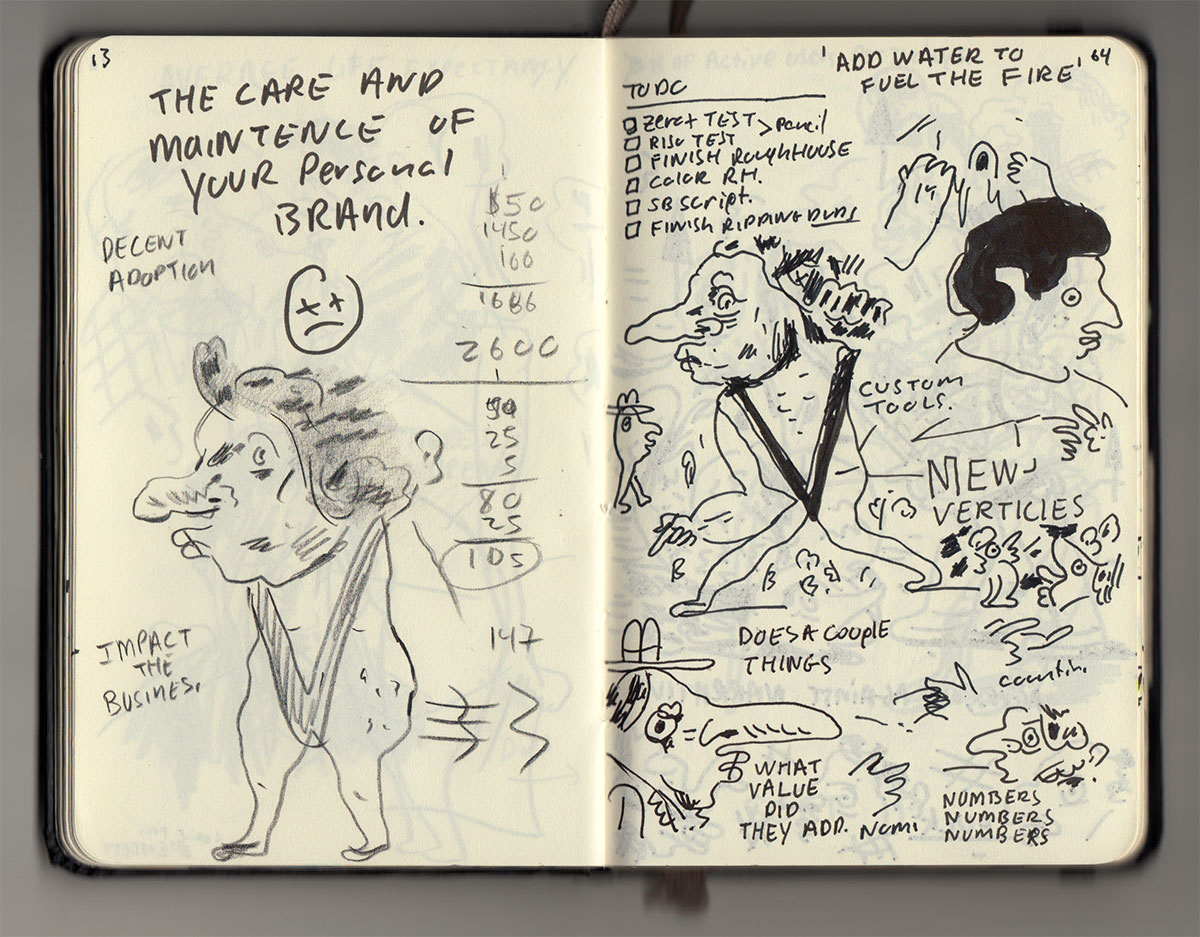 13
THE CARE AND
MAINTENCE OF
YOUR Personal
BRAND.
DECENT
ADOPTION
1450
100
1686
2600
1
50
25
5
80
25
105
147
IMPACT
THE
BUSINES.
'ADD WATER TO
FUEL THE FIRE'
64
TO DO
TEST
> Pencil
RISO TEST
FINISH ROUGHHOUSE
COLOR R.H.
SB SCRIPT.
FINISH RIPPING DVDS
CUSTOM
TOOLS.
NEW
VERTICIES
DOES A COUPLE
THINGS
WHAT
VALUE
DID
THEY ADD.
NUMBERS
NUMBERS
NUMBERS